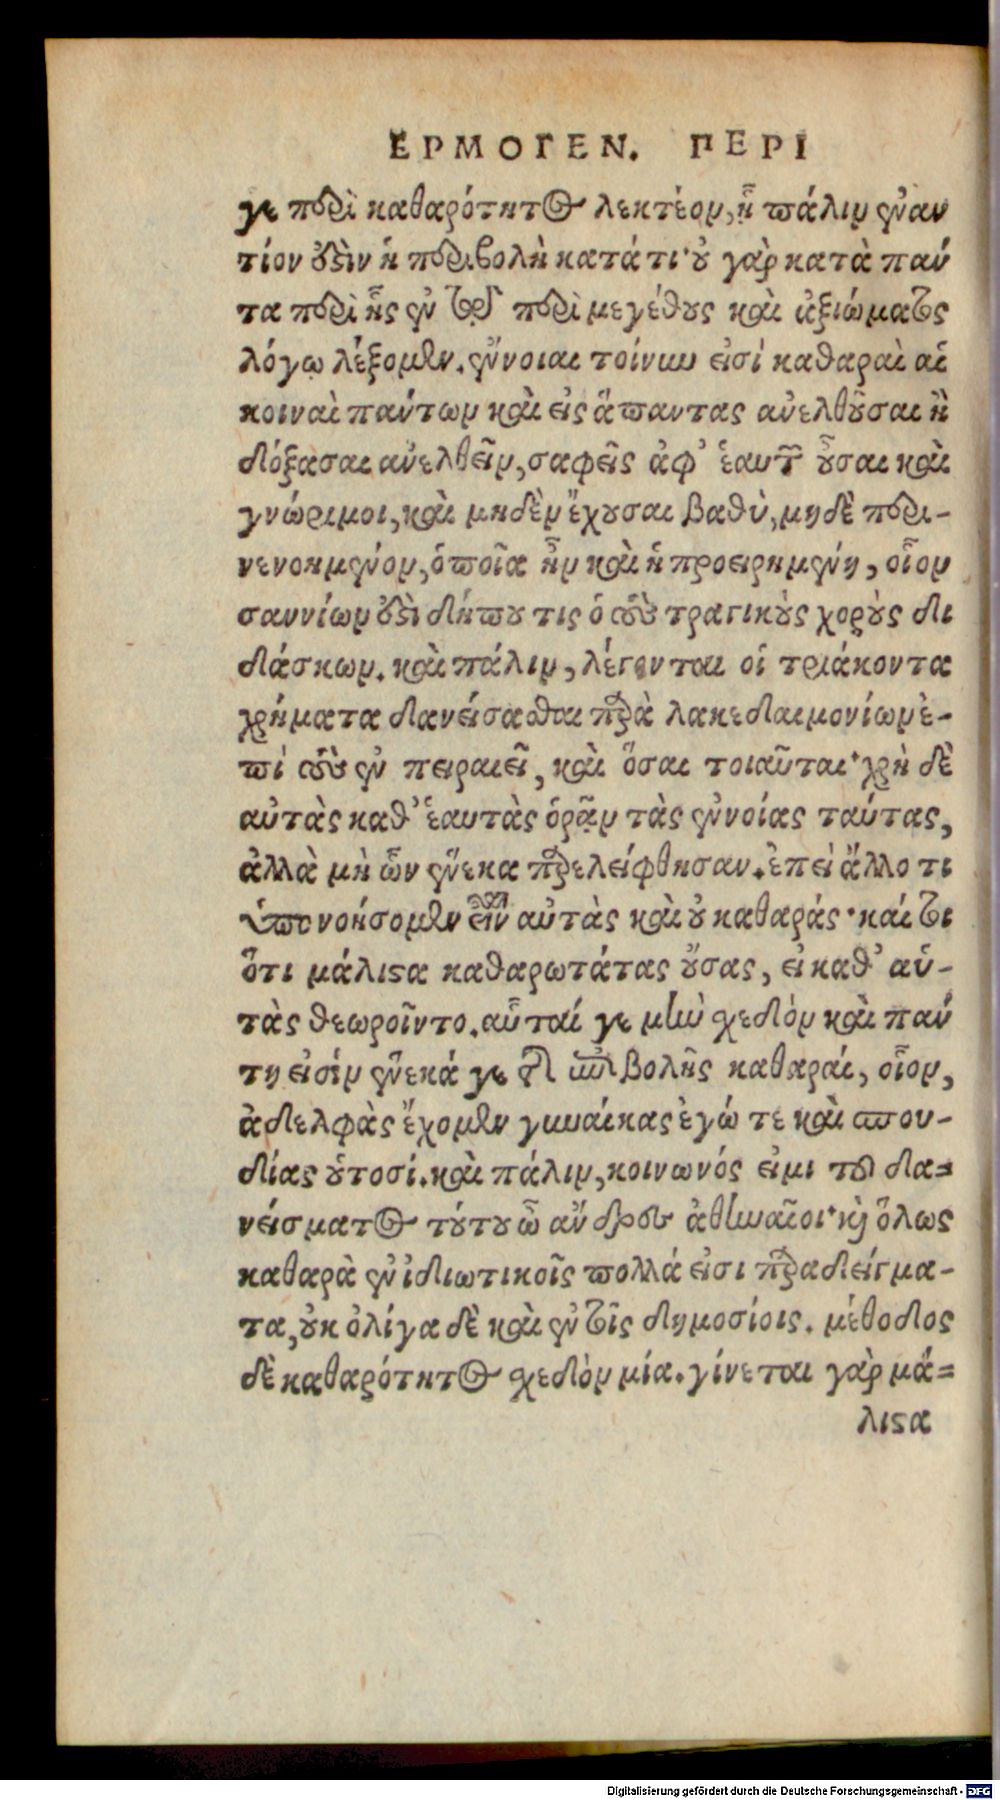 ΕΡΜΟΓΕΝ. ΠΕΡΙ
γε περὶ καθαρότητος λεκτέον, ᾗ πάλιν ἐναν
τίον ἐστὶν ἡ περιβολὴ κατά τι· οὐ γὰρ κατὰ πάν
τα περὶ ἧς ἐν τῷ περὶ μεγέθους καὶ ἀξιώματος
λόγῳ λέξομεν. ἔννοιαι τοίνυν εἰσὶ καθαραὶ αἱ
κοιναὶ πάντων καὶ εἰς ἅπαντας ἀνελθοῦσαι ἢ
δόξασαι ἀνελθεῖν, σαφεῖς ἀφ' ἑαυτῶν οὖσαι καὶ
γνώριμοι, καὶ μηδὲν ἔχουσαι βαθὺ, μηδὲ περι-
νενοημένον, ὁποῖα ἦν καὶ ἡ προειρημένη, οἷον
σαννίων ἐστὶ δήπου τις ὁ τοὺς τραγικοὺς χοροὺς δι
δάσκων. καὶ πάλιν, λέγονται οἱ τριάκοντα
χρήματα δανείσασθαι παρὰ λακεδαιμονίων ἐ-
πὶ τοὺς ἐν πειραιεῖ, καὶ ὅσαι τοιαῦται· χρὴ δὲ
αὐτὰς καθ' ἑαυτὰς ὁρᾷν τὰς ἐννοίας ταύτας,
ἀλλὰ μὴ ὧν ἕνεκα παρελείφθησαν. ἐπεὶ ἄλλο τι
ὑπονοήσομεν εἶναι αὐτὰς καὶ οὐ καθαράς· καί τοι
ὅτι μάλιστα καθαρωτάτας οὔσας, εἰ καθ' αὑ-
τὰς θεωροῖντο. αὗταί γε μὴν σχεδὸν καὶ πάν
τη εἰσὶν ἕνεκά γε τῆς ἐπιβολῆς καθαραί, οἷον,
ἀδελφὰς ἔχομεν γυναίκας ἐγώ τε καὶ σπου-
δίας οὑτοσί. καὶ πάλιν, κοινωνός εἰμι τοῦ δα-
νείσματος τούτου ὦ ἄνδρες ἀθηναῖοι· καὶ ὅλως
καθαρὰ ἐν ἰδιωτικοῖς πολλά εἰσι παραδείγμα-
τα, οὐκ ὀλίγα δὲ καὶ ἐν τοῖς δημοσίοις. μέθοδος
δὲ καθαρότητος σχεδὸν μία. γίνεται γὰρ μά-
λιστα
Digitalisierung gefördert durch die Deutsche Forschungsgemeinschaft - DFG